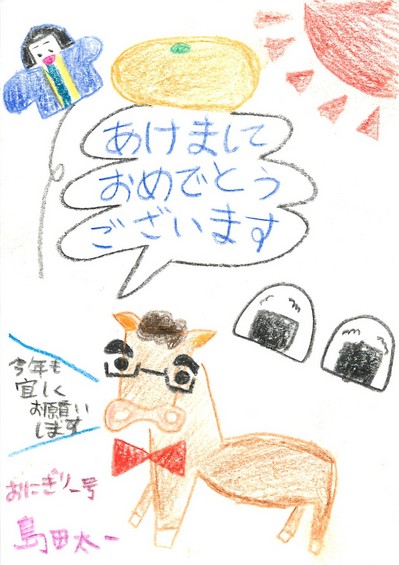 あけまして
おめでとう
ございます
今年も
宜しく
お願い
します
おにぎり一号
島田太一